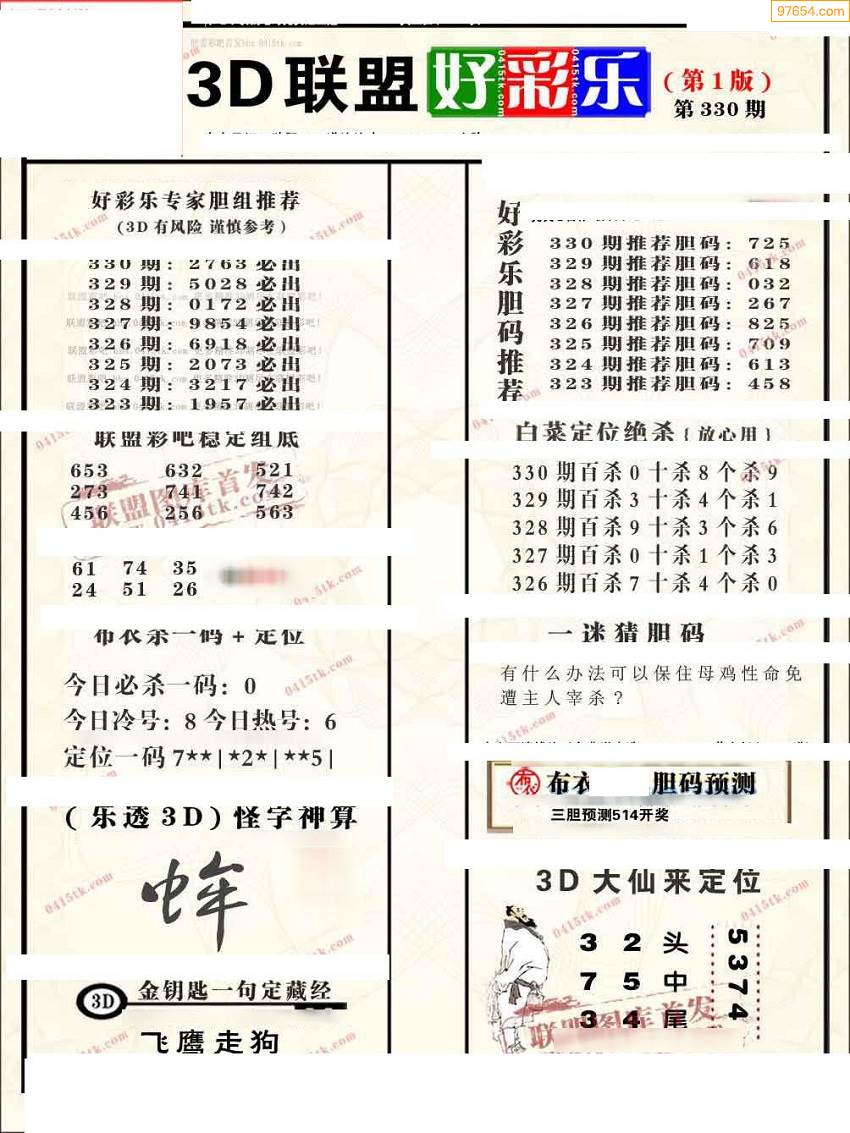 97654.com
3D联盟好彩乐
(第1版)
第330期
好彩乐专家胆组推荐
(3D有风险 谨慎参考)
330期: 2763必出
329期: 5028必出
328期: 0172必出
327期: 9854必出
326期: 6918必出
325期: 2073必出
324期: 3217必出
323期: 1957必出
联盟彩吧稳定组底
653 632 521
273 741 742
456 256 563
61 74 35
24 51 26
布衣杀一码+定位
今日必杀一码: 0
今日冷号: 8 今日热号: 6
定位一码 7**|*2*|**5|
(乐透3D) 怪字神算
3D 金钥匙一句定藏经
飞鹰走狗
好彩乐胆码推荐
330期推荐胆码: 725
329期推荐胆码: 618
328期推荐胆码: 032
327期推荐胆码: 267
326期推荐胆码: 825
325期推荐胆码: 709
324期推荐胆码: 613
323期推荐胆码: 458
白菜定位绝杀{放心用}
330期百杀0十杀8个杀9
329期百杀3十杀4个杀1
328期百杀9十杀3个杀6
327期百杀0十杀1个杀3
326期百杀7十杀4个杀0
一迷猜胆码
有什么办法可以保住母鸡性命免
遭主人宰杀?
布衣 胆码预测
三胆预测514开奖
3D大仙来定位
3 2 头
7 5 中
3 4 尾
5374
联盟图库首发
0415tk.com